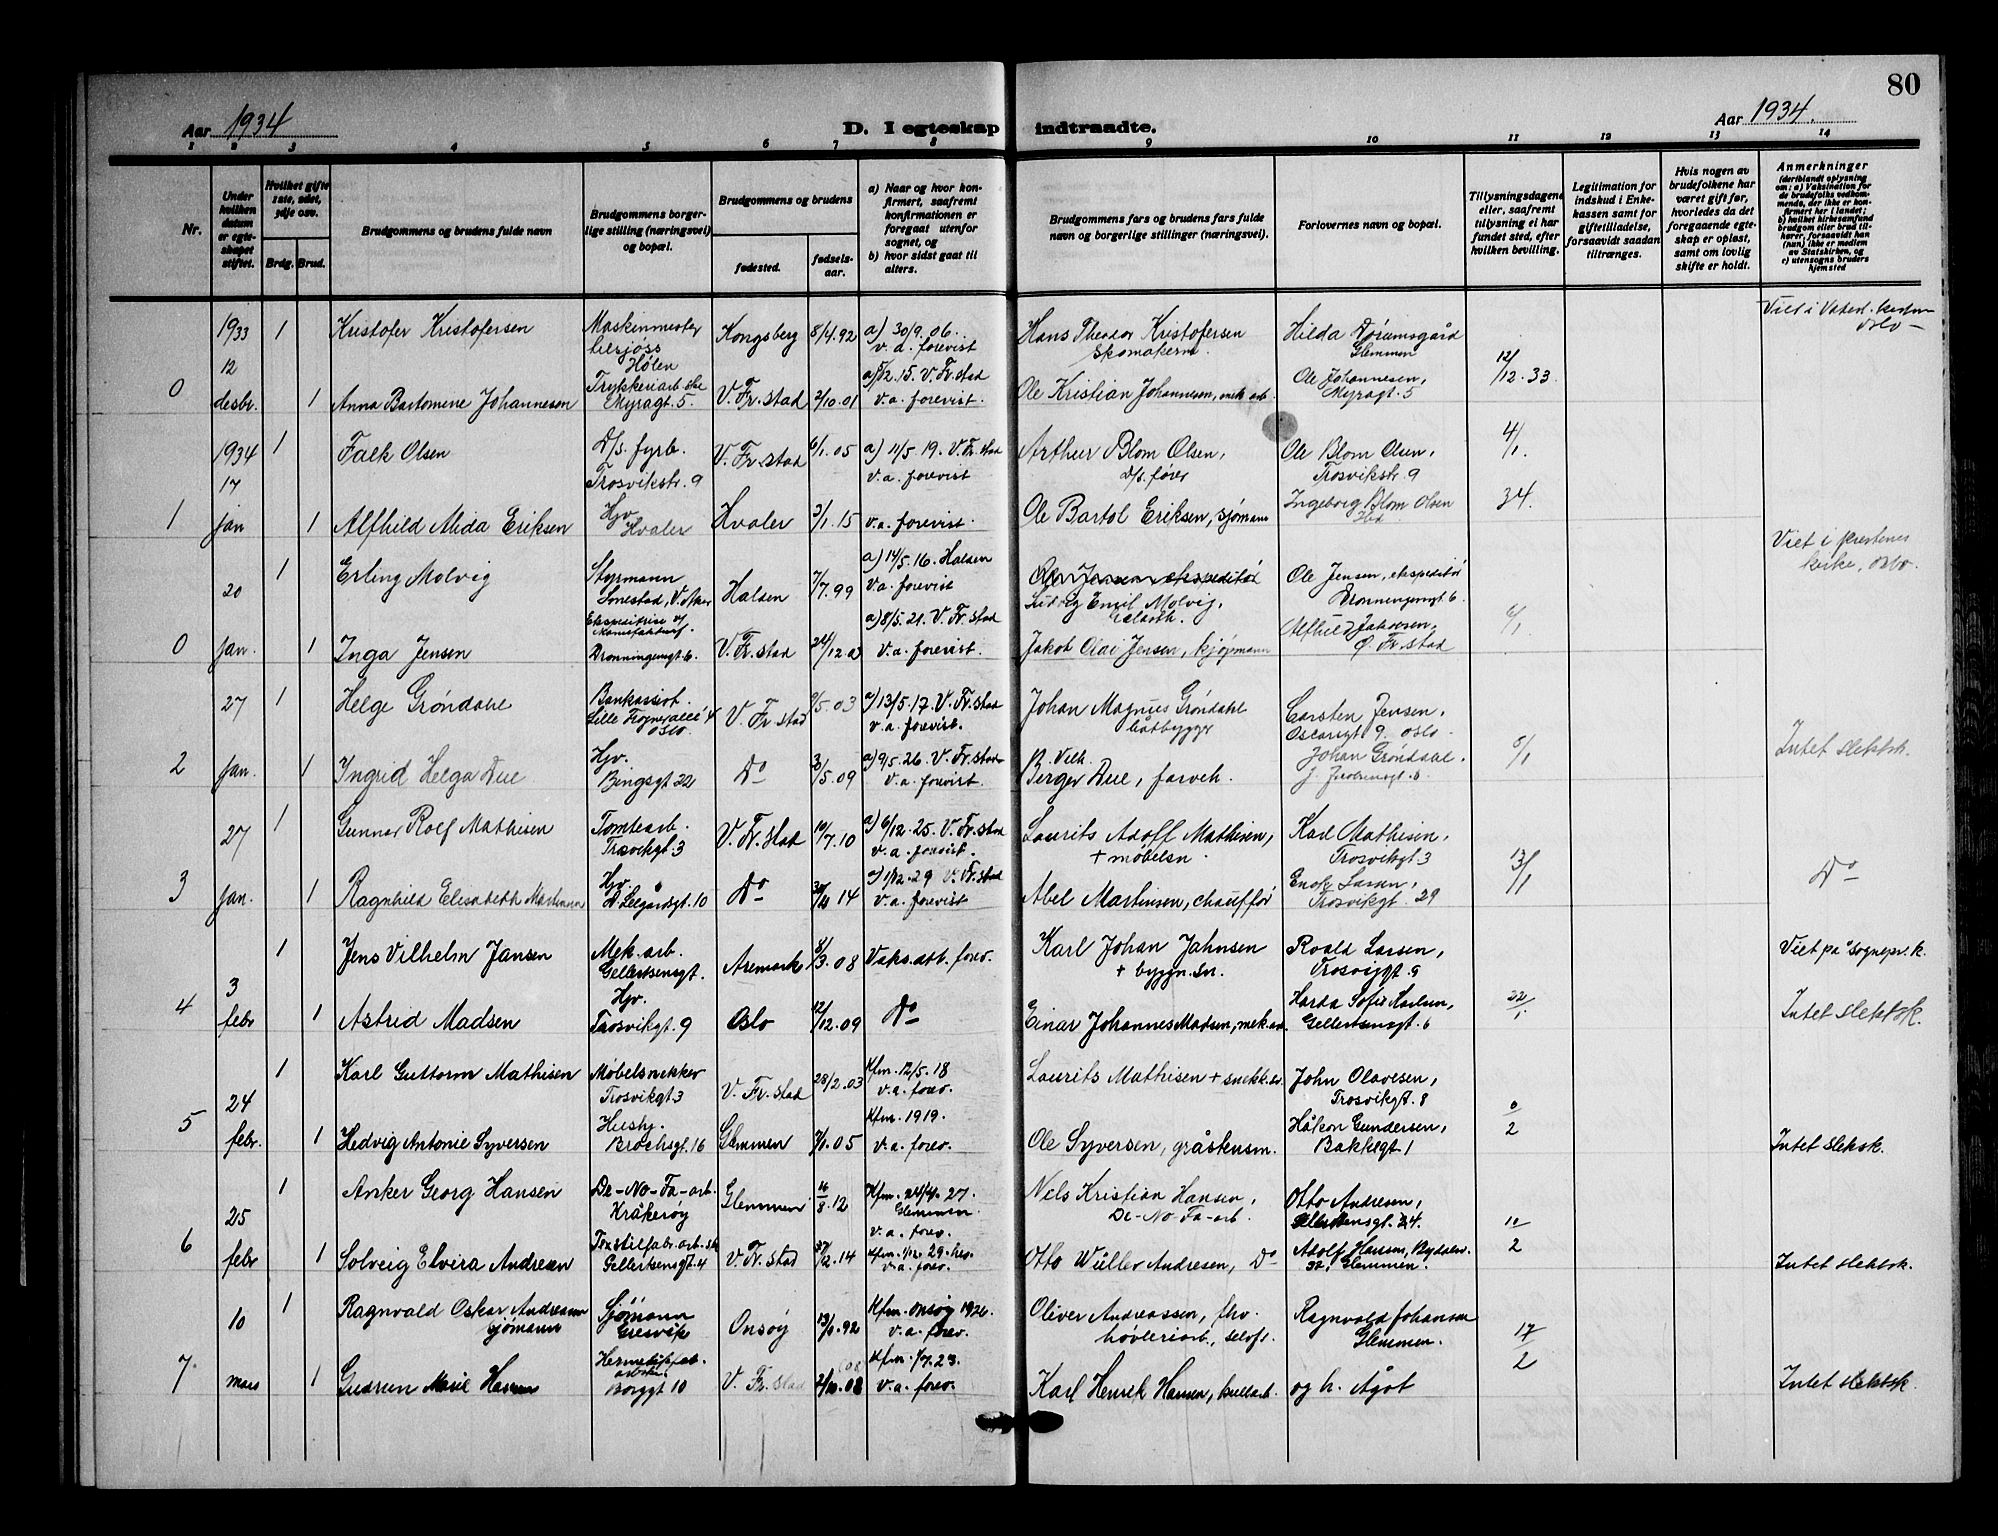 80
Aar 1934
D. I egteskap indtraadte.
Aar 1934.
1 2 3 4 5 6 7 8 9 10 11 12 13 14
Nr.
Under hvilken datum er egteskapet stiftet.
Hvilket gifte 1ste, 2det, 3dje osv.
Brdg. Brud.
Brudgommens og brudens fulde navn
Brudgommens borgerlige stilling (næringsvei) og bopæl.
Brudgommens og brudens
fødested.
fødselsaar.
a) Naar og hvor konfirmert, saafremt konfirmationen er foregaat utenfor sognet, og
b) hvor sidst gaat til alters.
Brudgommens fars og brudens fars fulde navn og borgerlige stillinger (næringsvei).
Forlovernes navn og bopæl.
Tillysningsdagene eller, saafremt tillysning ei har fundet sted, efter hvilken bevilling.
Legitimation for indskud i Enkekassen samt for giftetilladelse, forsaavidt saadan tiltrænges.
Hvis nogen av brudefolkene har været gift før, hvorledes da det foregaaende egteskap er opløst, samt om lovlig skifte er holdt.
Anmerkninger
(deriblandt oplysning om: a) Vaksination for de brudefolks vedkommende, der ikke er konfirmert her i landet; b) hvilket kirkesamfund brudgom eller brud tilhører, forsaavidt han (hun) ikke er medlem av Statskirken, og c) utensogns bruders hjemsted
0 1933 12 desbr.
1 Kristofer Kristofersen Maskinmester tilsjøss Hølen Kongsberg 8/4.92 a) 30/9.06. v.a. forevist Hans Theodor Kristofersen skomakerm. Hilda Glemmen 12/12.33. Viet i Oslo
1 Anna Bartomine Johannesen Trykkeriarb.ske Myragt. 5. V. Fr.stad 2/10.01 15. V. Fr.stad v.a. forevist. Ole Kristian Johannesen, mek.arb. Ole Johannesen, Myragt. 5
1 1934 17 jan
1 Falk Olsen D/s. fyrb. Trosvikstr. 9 V. Fr.stad 6/1.05 a) 11/5 19. V. Fr.stad v.a. forevist Arthur Blom Olsen, D/s. fører Ole Blom Olsen, Trosvikstr. 9 4/1. 34.
1 Alfhild Mida Eriksen Hjv. Hvaler Hvaler 3/1.15 v.a. forevist. Ole Bartol Eriksen, sjømann Ingeborg Blom Olsen ibd.
0 20 jan.
1 Erling Molvig Styrmann V. Aker Halsen 7/7.99 a) 14/5.16. Halsen v.a. forevist Ole Jensen, ekspeditør Ludvig Emil Molvig, Ole Jensen, ekspeditør Dronningensgt 6. 6/1 Viet i prestenes kirke, Oslo.
1 Inga Jensen Dronningensgt. 6. V. Fr.stad 24/12.02 a) 8/5.21. V. Fr.stad v.a. forevist. Jakob Olai Jensen, kjøpmann Alfhild Ø. Fr.stad
2 27 jan.
1 Helge Grøndahl Bankassist. Lille Frogneralle 4 Oslo V. Fr.stad 9/5.03 a) 13/5.17. V. Fr.stad v.a. forevist. Johan Magnus Grøndahl båtbygger Carsten Jensen, Oscarsgt 9. Oslo. 5/1 Intet slektsk.
1 Ingrid Helga Due Hjv. Bingsgt 22 Do 3/5.09 a) 9/5.26. V. Fr.stad v.a. forevist. B. Vilh. Birger Due, farveh. Johan Grøndahl.
3 27 jan.
1 Gunnar Rolf Mathisen Tomtearb. Trosvikgt. 3 V. Fr.stad 10/7.10 a) 6/12.25. V. Fr.stad v.a. forevist. Laurits Adolf Mathisen, + møbelsn. Karl Mathisen, Trosvikgt. 3 13/1 Do
1 Ragnhild Elisabeth Martinsen Hjv. 10 Do 14 a) 1/12.29 V. Fr.stad v.a. forevist Abel Martinsen, chauffør Enok Larsen, Trosvikgt. 29
4 3 febr
1 Jens Vilhelm Jansen Mek.arb. Gellertsensgt. Aremark 8/3.08 Vaks.att. forev. Karl Johan Jahnsen + byggn.sn. Roald Larsen, Trosvigt. 9 22/1. Viet på sognepr.k.
1 Astrid Madsen Hjv. Trosvikgt. 9 Oslo 12/12.09 Do Einar Johannes Madsen, mek.arb. Harda Sofie Karlsen, Gellertsensgt. 6 Intet slektsk.
5 24 febr.
1 Karl Guttorm Mathisen Møbelsnekker Trosvikgt. 3 V. Fr.stad 28/2.03 Kfm. 12/5.18 v.a. forev. Laurits Mathisen + snekk.sv. John Olavesen, Trosvikgt. 8 /2
1 Hedvig Antonie Syversen Hushj. Brochsgt. 16 Glemmen 7/1.05 Kfm. 1919. v.a. forev. Ole Syversen, gråstensm. Håkon Gundersen, Bakkegt. 1 Intet slektsk.
6 25 febr
1 Anker Georg Hansen De-No-Fa-arb. Kråkerøy Glemmen 16/8.12 Kfm. 24/4.27. Glemmen v.a. forev. Nels Kristian Hansen, De-No-Fa-arb. Otto Andresen, Gellertsensgt. 24. 10/2
1 Solveig Elvira Andresen Gellertsensgt. 4 V. Fr.stad 14 Kfm. 1/12.29. her. v.a. forev. Otto Wüller Andresen, Do Adolf Hansen, 32, Glemmen. Intet slektsk.
7. 10 mars
1 Ragnvald Oskar Andreassen sjømann Sjømann Gresvik Onsøy 13/1.92 Kfm. Onsøy 1926. v.a. forev. Oliver Andreassen, fhv. høvleriarb., Seloft. Ragnvald Johansen Glemmen. 17/2
1 Gudrun Marie Hansen Hermetikkfab. arbske. Borggt 10 V. Fr.stad 2/10.08 (08) Kfm. 1/7.23. v.a. forev. Karl Henrik Hansen, og h. Ågot Intet slektsk.